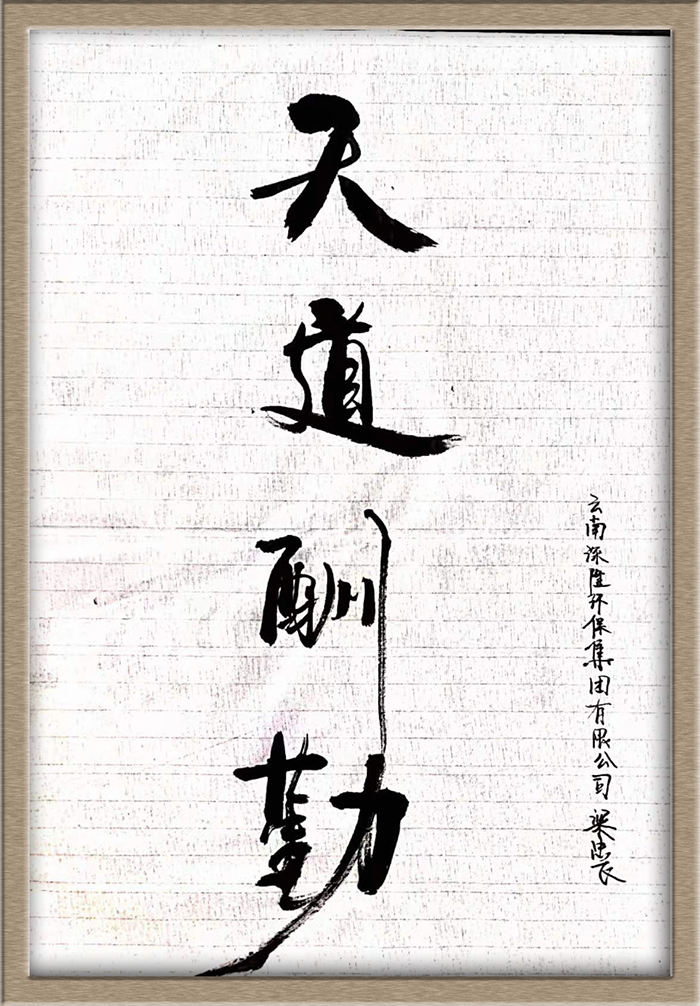 天道酬勤
云南深隆环保集团有限公司 梁忠辰